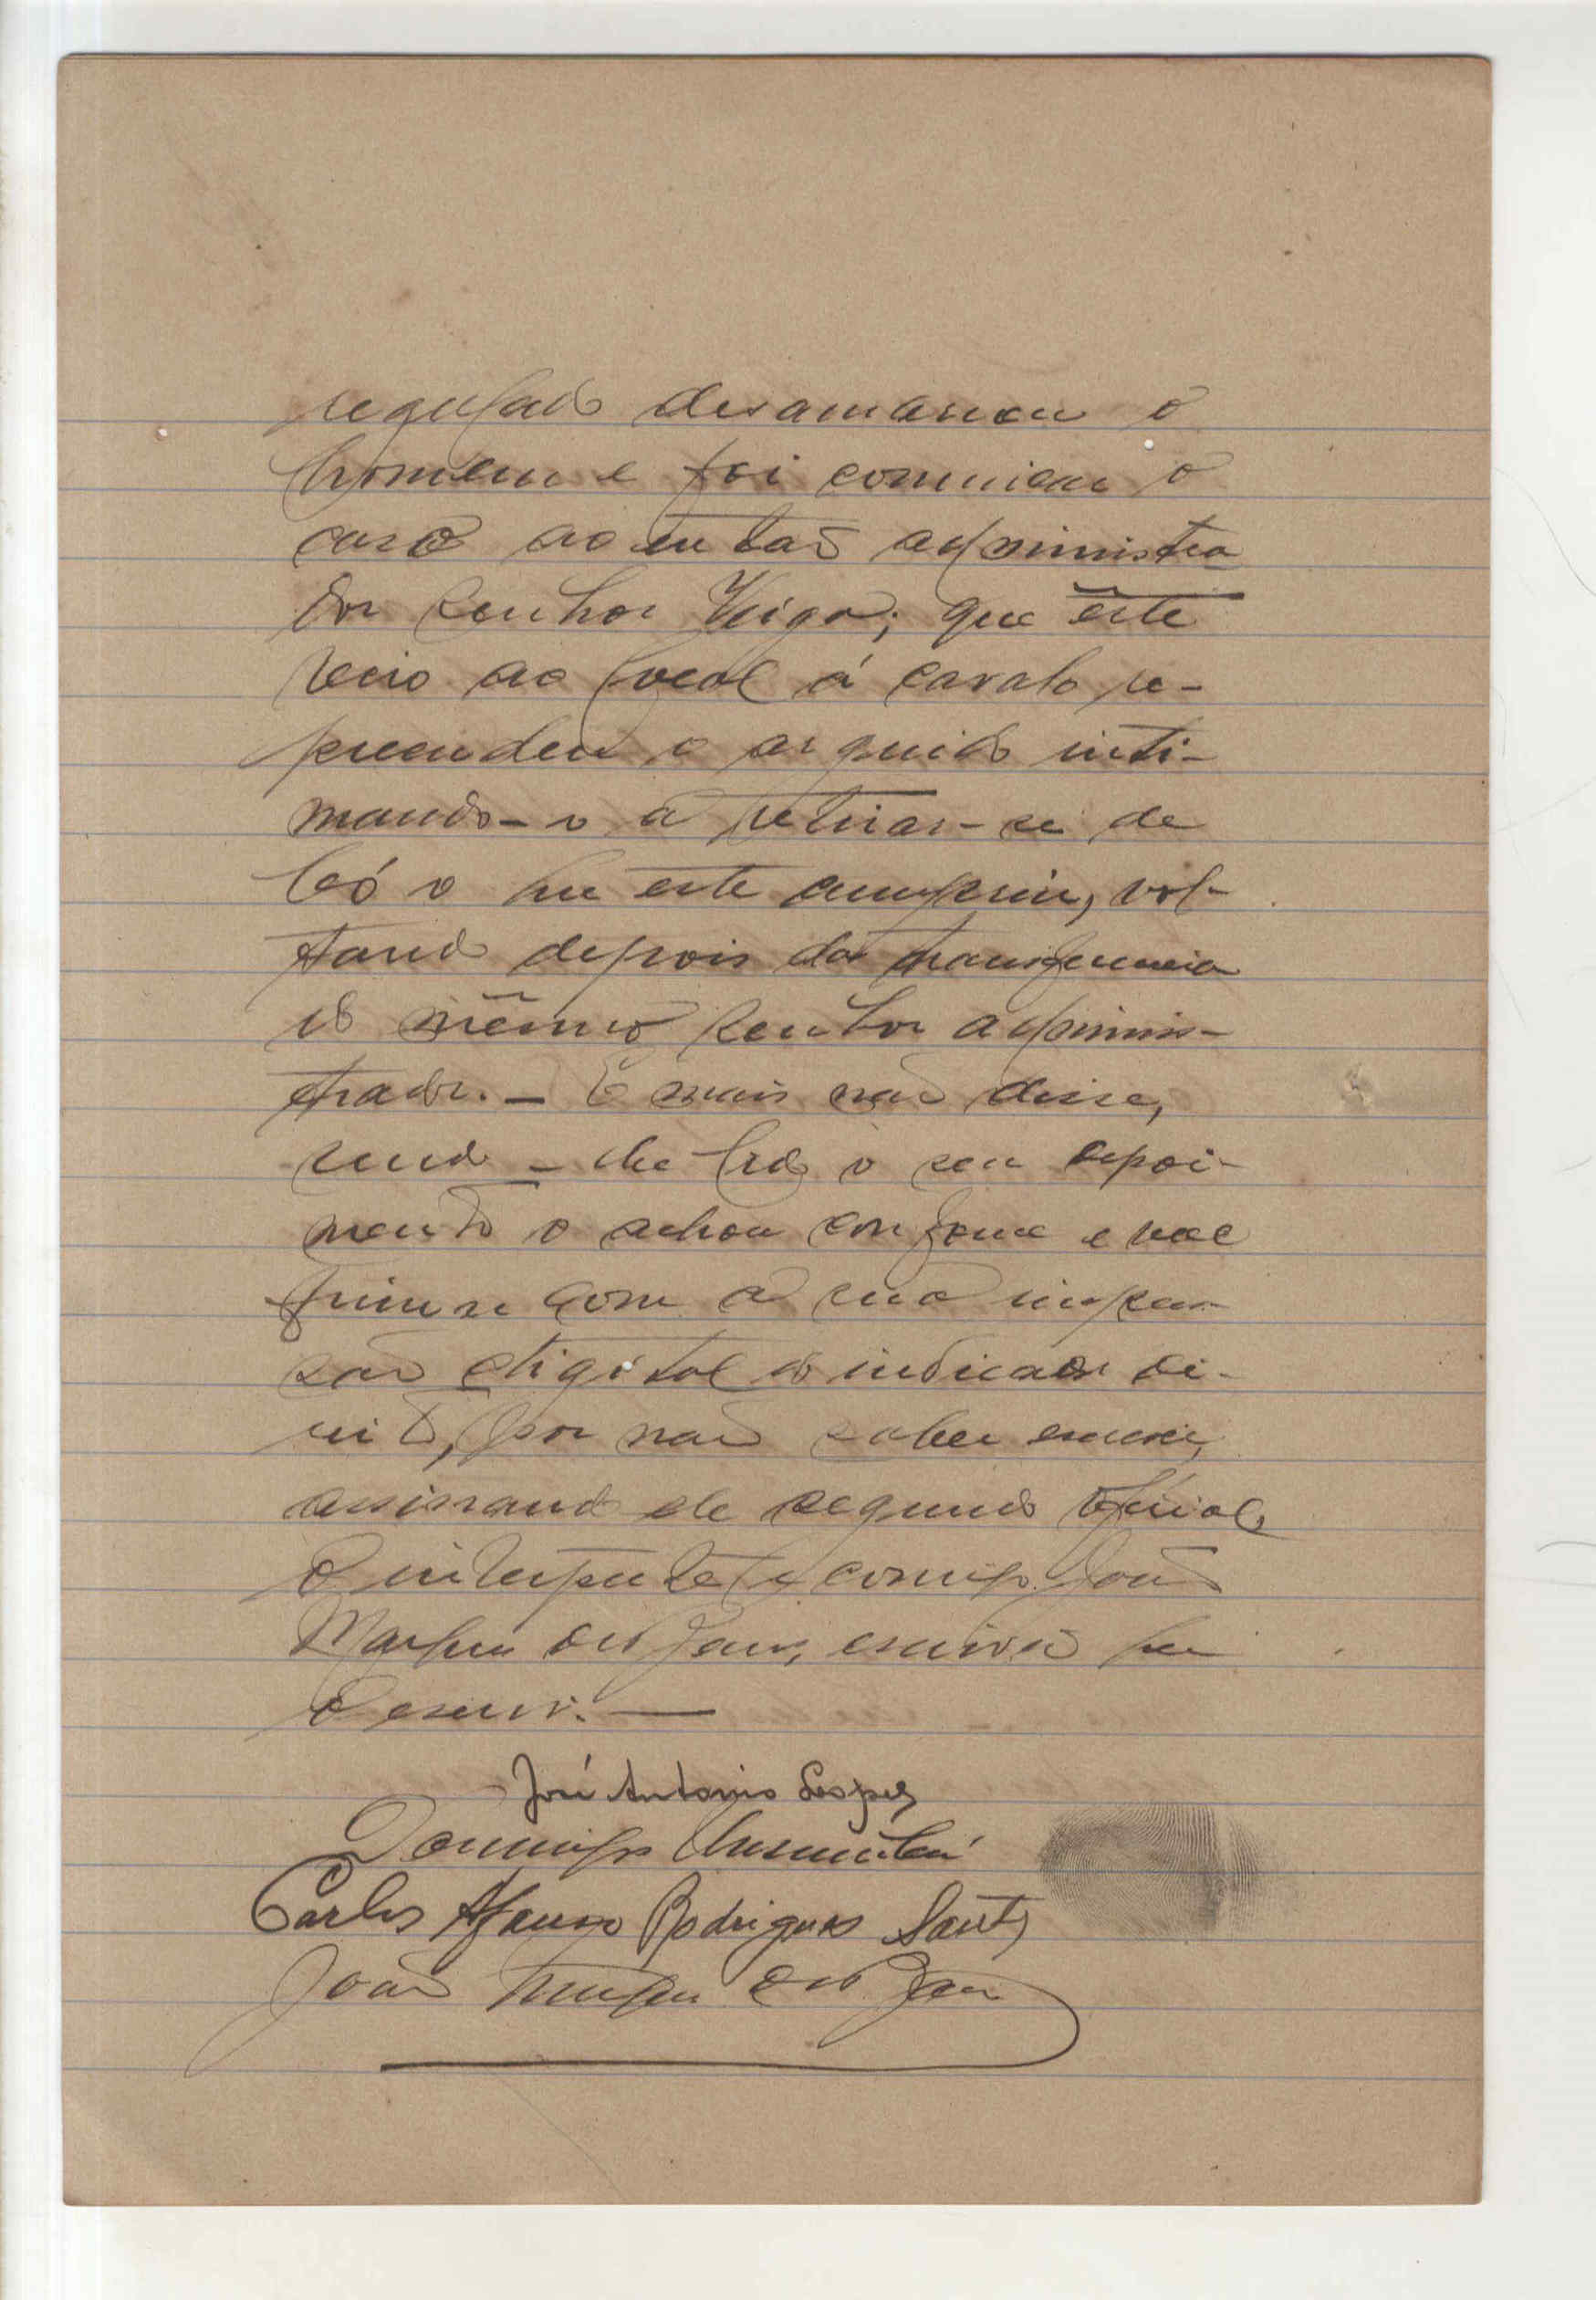 regulado desamarrou o
homem e foi comunicar o
caso ao então administra
dor senhor Veiga; que êste
veio ao local á cavalo re-
preendeu o arguido inti-
mando-o a retirar-se de
lá o que este cumpriu, vol-
tando depois da transferencia
do mêsmo senhor adminis-
trador. — E mais não disse,
sendo-lhe lido o seu depoi-
mento o achou conforme e vae
firmar com a sua impres-
são digital do indicador di-
reito, por não saber escrever,
assinando ele segundo oficial,
o interprete e comigo João
escrivão que
o escrevi. —
José Antonio Lopes
Domingos
Carlos Afonso Rodrigues Santos
João